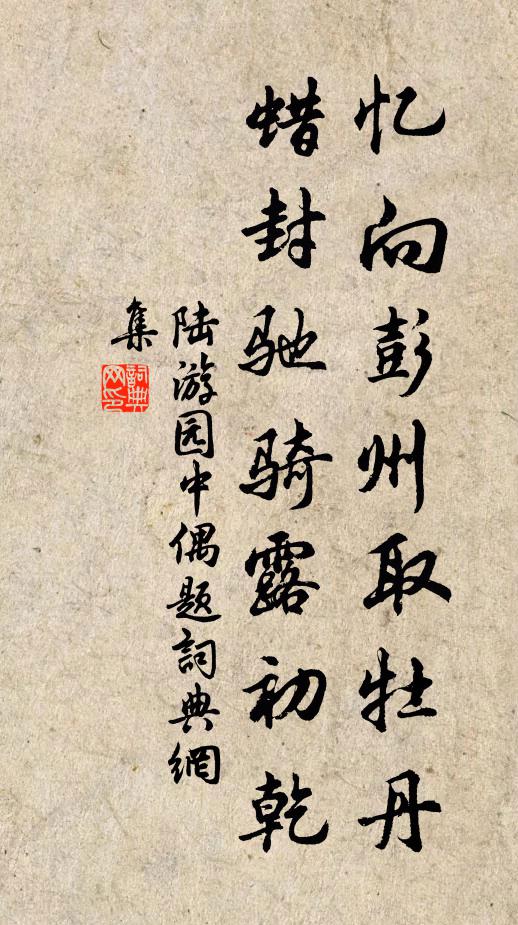 忆向彭州取牡丹
蜡封驰骑露初乾
陆游园中偶题詞典網
集
詞典网印